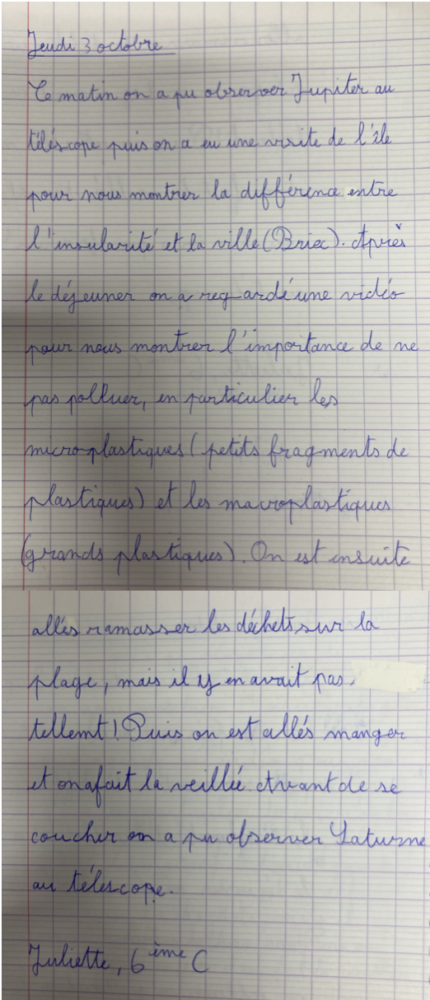 Jeudi 3 octobre
Ce matin on a pu observer Jupiter au
téléscope puis on a eu une visite de l'île
pour nous montrer la différence entre
l'insularité et la ville (Briec). Après
le déjeuner on a regardé une vidéo
pour nous montrer l'importance de ne
pas polluer, en particulier les
microplastiques (petits fragments de
plastiques) et les macroplastiques
(grands plastiques). On est ensuite
allés ramasser les déchets sur la
plage, mais il y en avait pas
tellemt! Puis on est allés manger
et on a fait la veillée. Avant de se
coucher on a pu observer Saturne
au téléscope.
Juliette, 6ème C